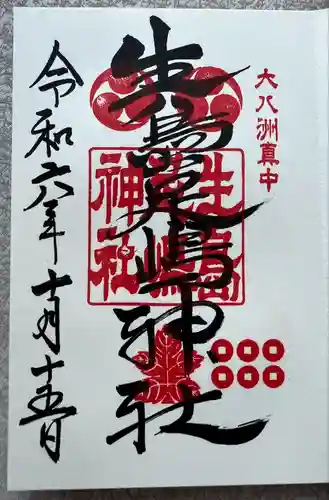 大八洲真中
生島足嶋神社
生島足嶋神社
令和六年十月十五日